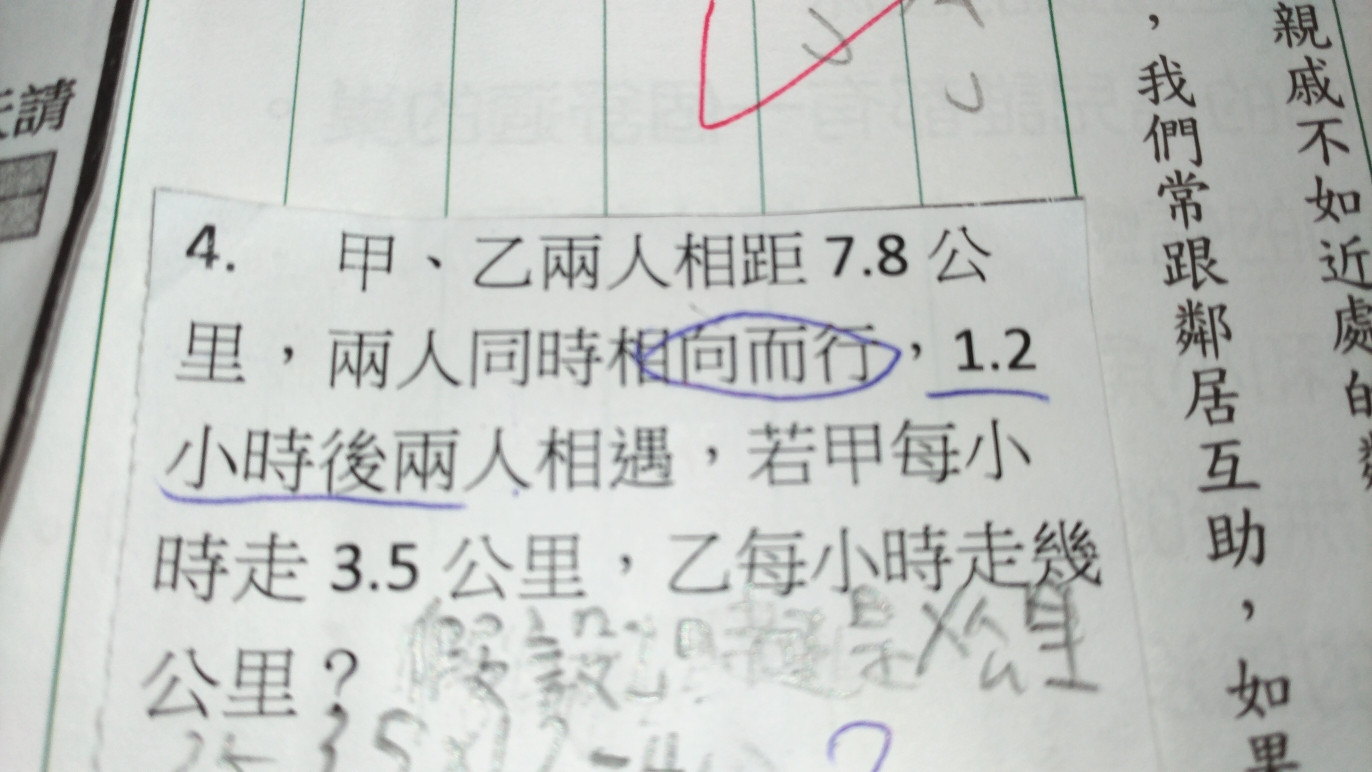 4. 甲、乙兩人相距 7.8 公
里，兩人同時相向而行，1.2
小時後兩人相遇，若甲每小
時走 3.5 公里，乙每小時走幾
公里？
假設
是X公里
親戚不如近處的
，我們常跟鄰居互助，如果
請